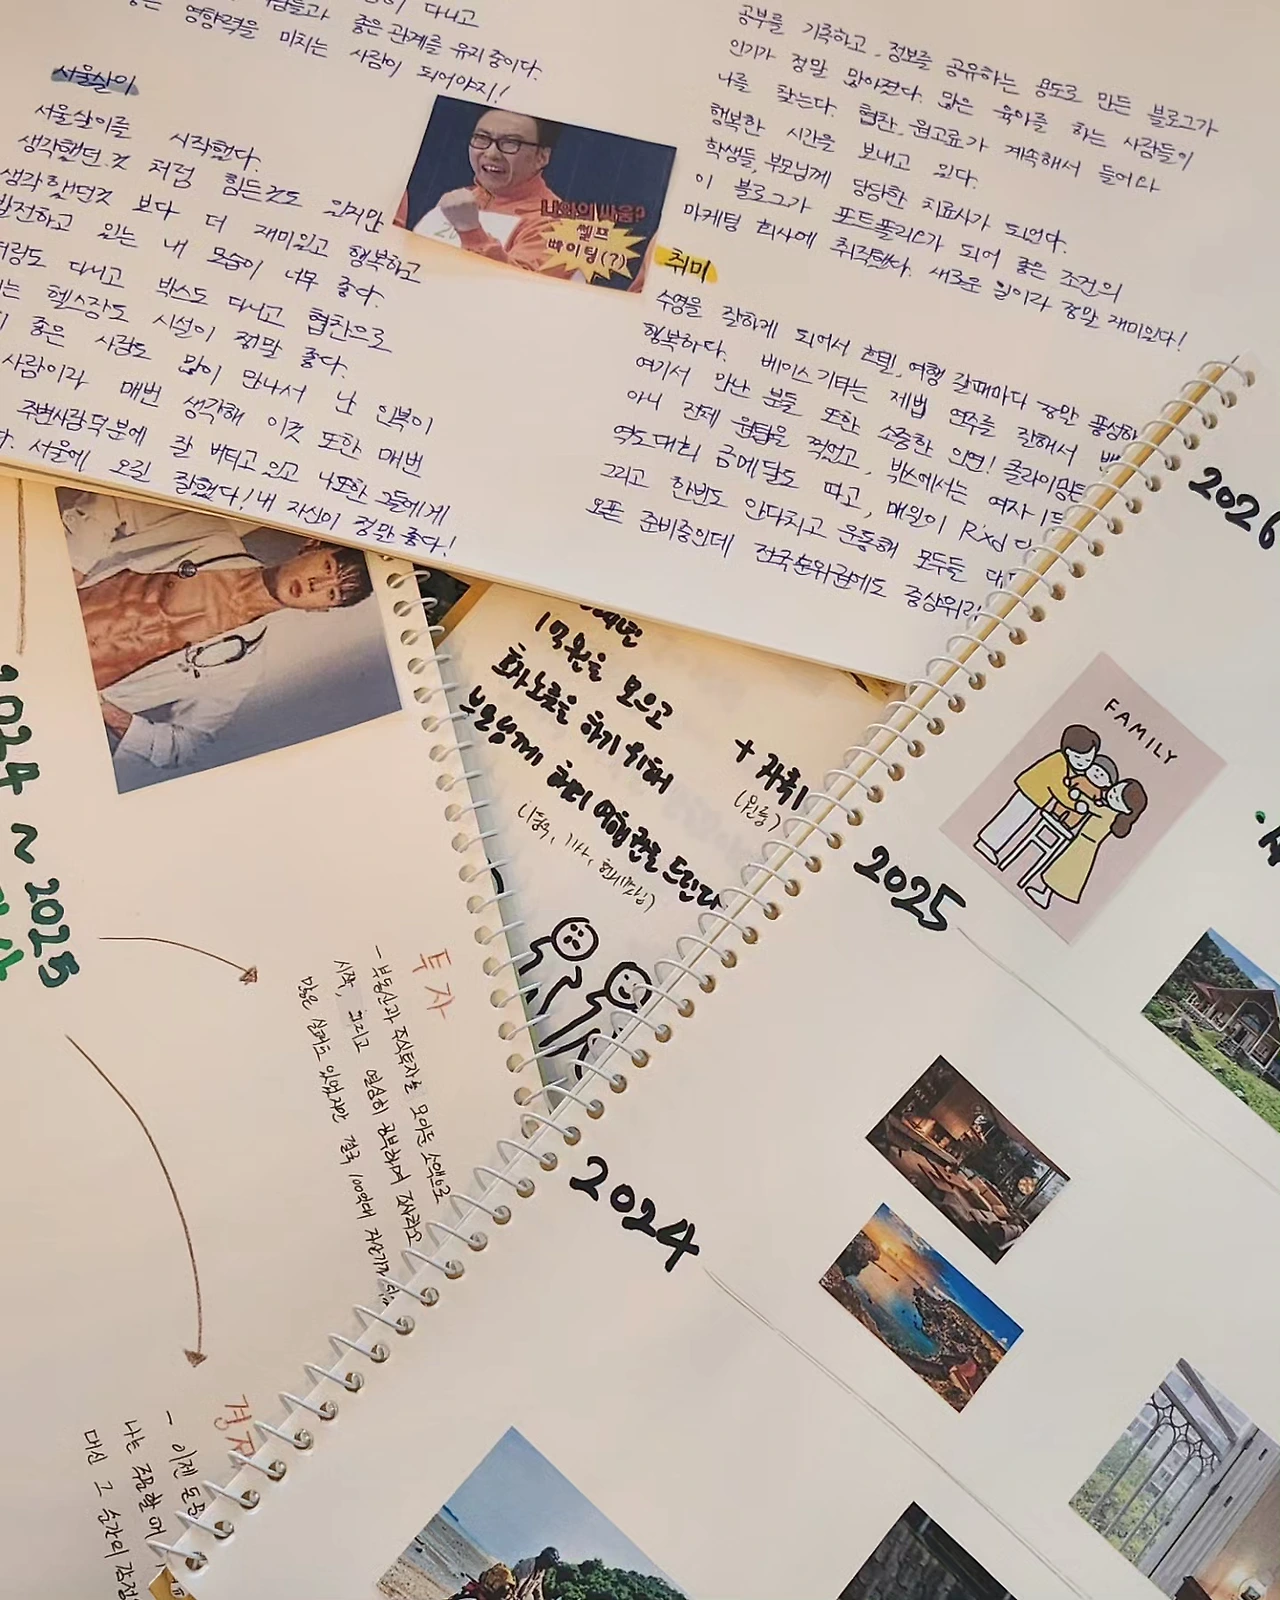 다니고
좋은 관계를 유지중이다.
영향력을 미치는 사람이 되어야지!
서울살이
서울살이를 시작했다.
생각했던 것 처럼 힘든것도 있지만
생각했던것 보다 더 재미있고 행복하고
발전하고 있는 내 모습이 너무 좋다.
다니고 박스도 다니고 협찬으로
헬스장도 시설이 정말 좋다.
좋은 사람도 많이 만나서 난 인복이
사람이라 매번 생각해 이것 또한 매번
주변사람 덕분에 잘 버티고 있고 나또한 그들에게
서울에 오길 잘했다! 내 자신이 정말 좋다!
나와의 싸움?
셀프
빠이팅(?)
공부를 기록하고, 정보를 공유하는 용도로 만든 블로그가
인기가 정말 많아졌다. 많은 육아를 하는 사람들이
나를 찾는다. 협찬, 원고료가 계속해서 들어와
행복한 시간을 보내고 있다.
학생들, 부모님께 당당한 치료사가 되었다.
이 블로그가 포트폴리오가 되어 좋은 조건의
마케팅 회사에 취직했다. 새로운 일이라 정말 재미있다!
취미
수영을 잘하게 되어서 호텔, 여행 갈때마다 정말 풍성하
행복하다. 베이스기타는 제법 연주를 잘해서
여기서 만난 분들 또한 소중한 인연! 클라이밍은
아니 전체 원탑을 찍었고, 박스에서는 여자 1등
역도대회 금메달도 따고, 매일이 Rxd
그리고 한번도 안다치고 운동해 모두들
오픈 준비중인데 전국순위권에도 중상위
2026
FAMILY
2025
2024
1억원을 모으고
효자노릇을 하기 위해
부모님께 해외 여행권을 드린다.
+ 자취
2024 ~ 2025
투자
- 부동산과 주식투자를 모아둔 소액으로
시작, 그리고 열심히 공부하며
많은 실패도 있었지만 결국 100억대 자산가가
경제
- 이젠 돈
나는
대신 그 순간의 감정